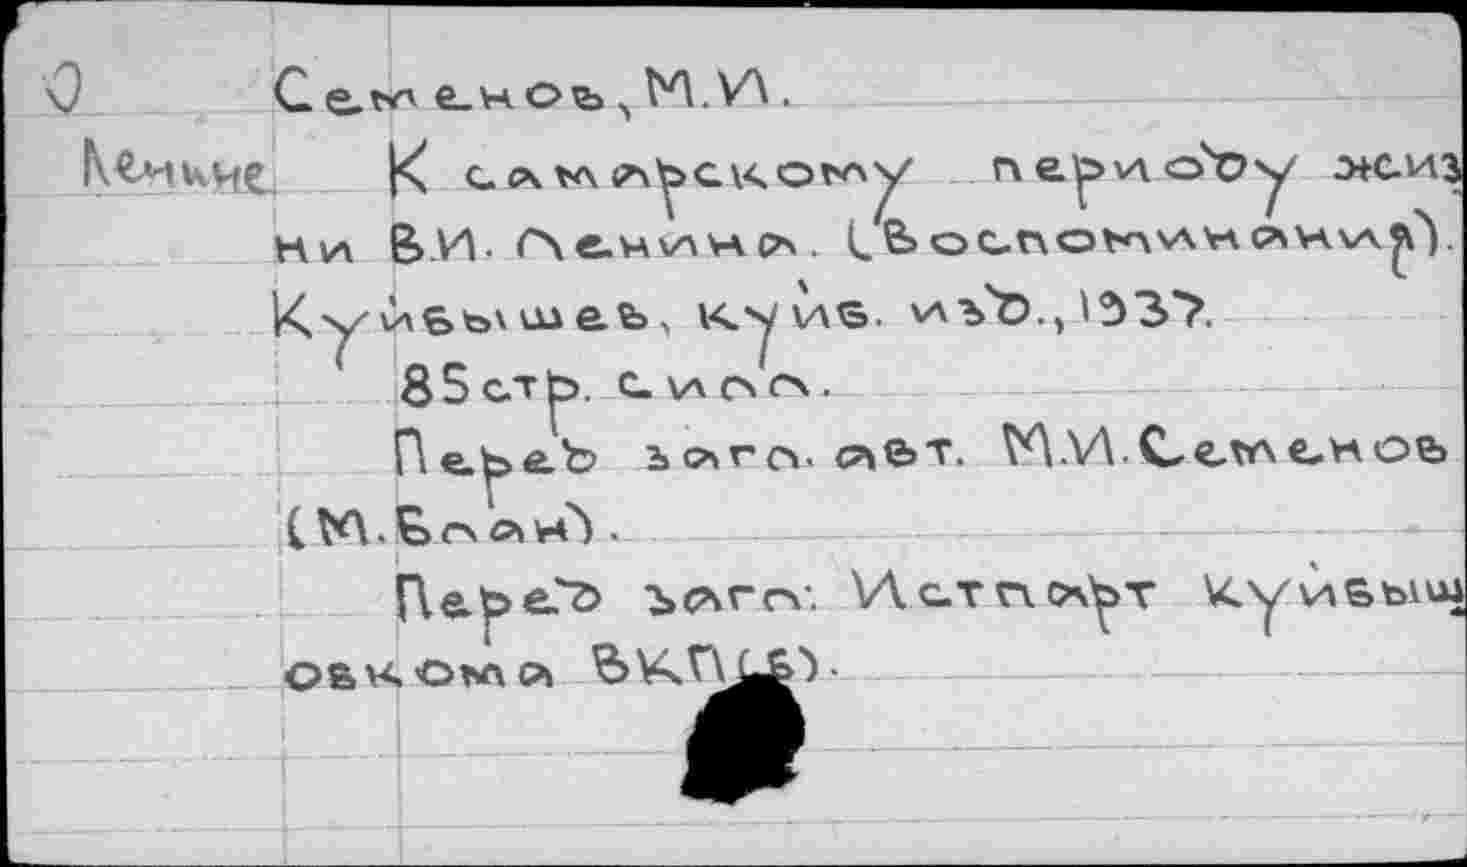 О Семенов, М.И.
Ленине К самарскому периоду жиз
ни В.И. Ленина. (Воспоминания).
Куйбышев, куйб. изд., 1937.
85 стр. с илл.
Перед загл. авт. М.И. Семенов
(М. Блан).
Перед загл: Истпарт куйбыш
обкома ВКП(б).